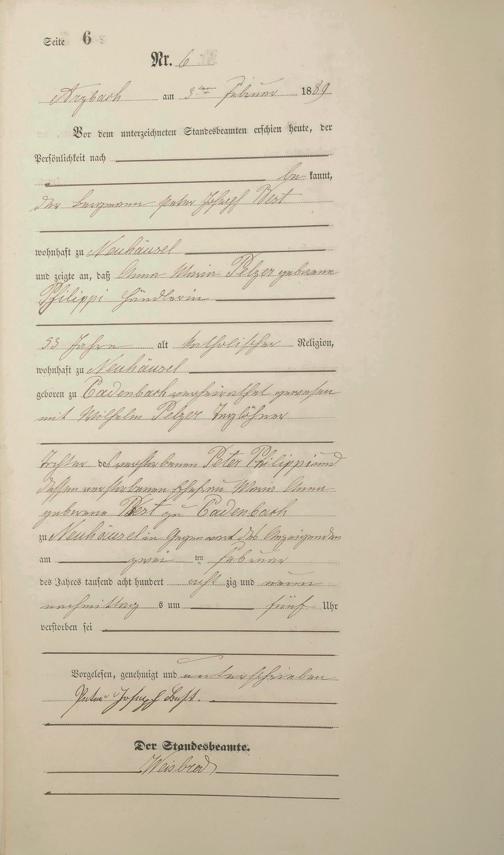 Seite 6
Nr. 6
Arzbach am 3ten Februar 1889
Vor dem unterzeichneten Standesbeamten erschien heute, der
Persönlichkeit nach
be kannt,
der Bergmann Peter Joseph Best
wohnhaft zu Neuhäusel
und zeigte an, daß Anna Maria Pelzer geborene
Philippi Händlerin
53 Jahre alt katholischer Religion,
wohnhaft zu Neuhäusel
geboren zu Cadenbach verheirathet gewesen
mit Wilhelm Pelzer Taglöhner
Tochter des verstorbenen Peter Philippi und
dessen verstorbenen Ehefrau Maria Anna
geborene Best zu Cadenbach
zu Neuhäusel in Gegenwart des Anzeigenden
am zwei ten Februar
des Jahres tausend acht hundert acht zig und neun
nachmittag s um fünf Uhr
verstorben sei
Vorgelesen, genehmigt und unterschrieben
Peter Joseph Best.
Der Standesbeamte.
Weisbrod